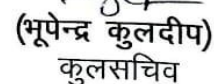 (भूपेन्द्र कुलदीप)
कुलसचिव